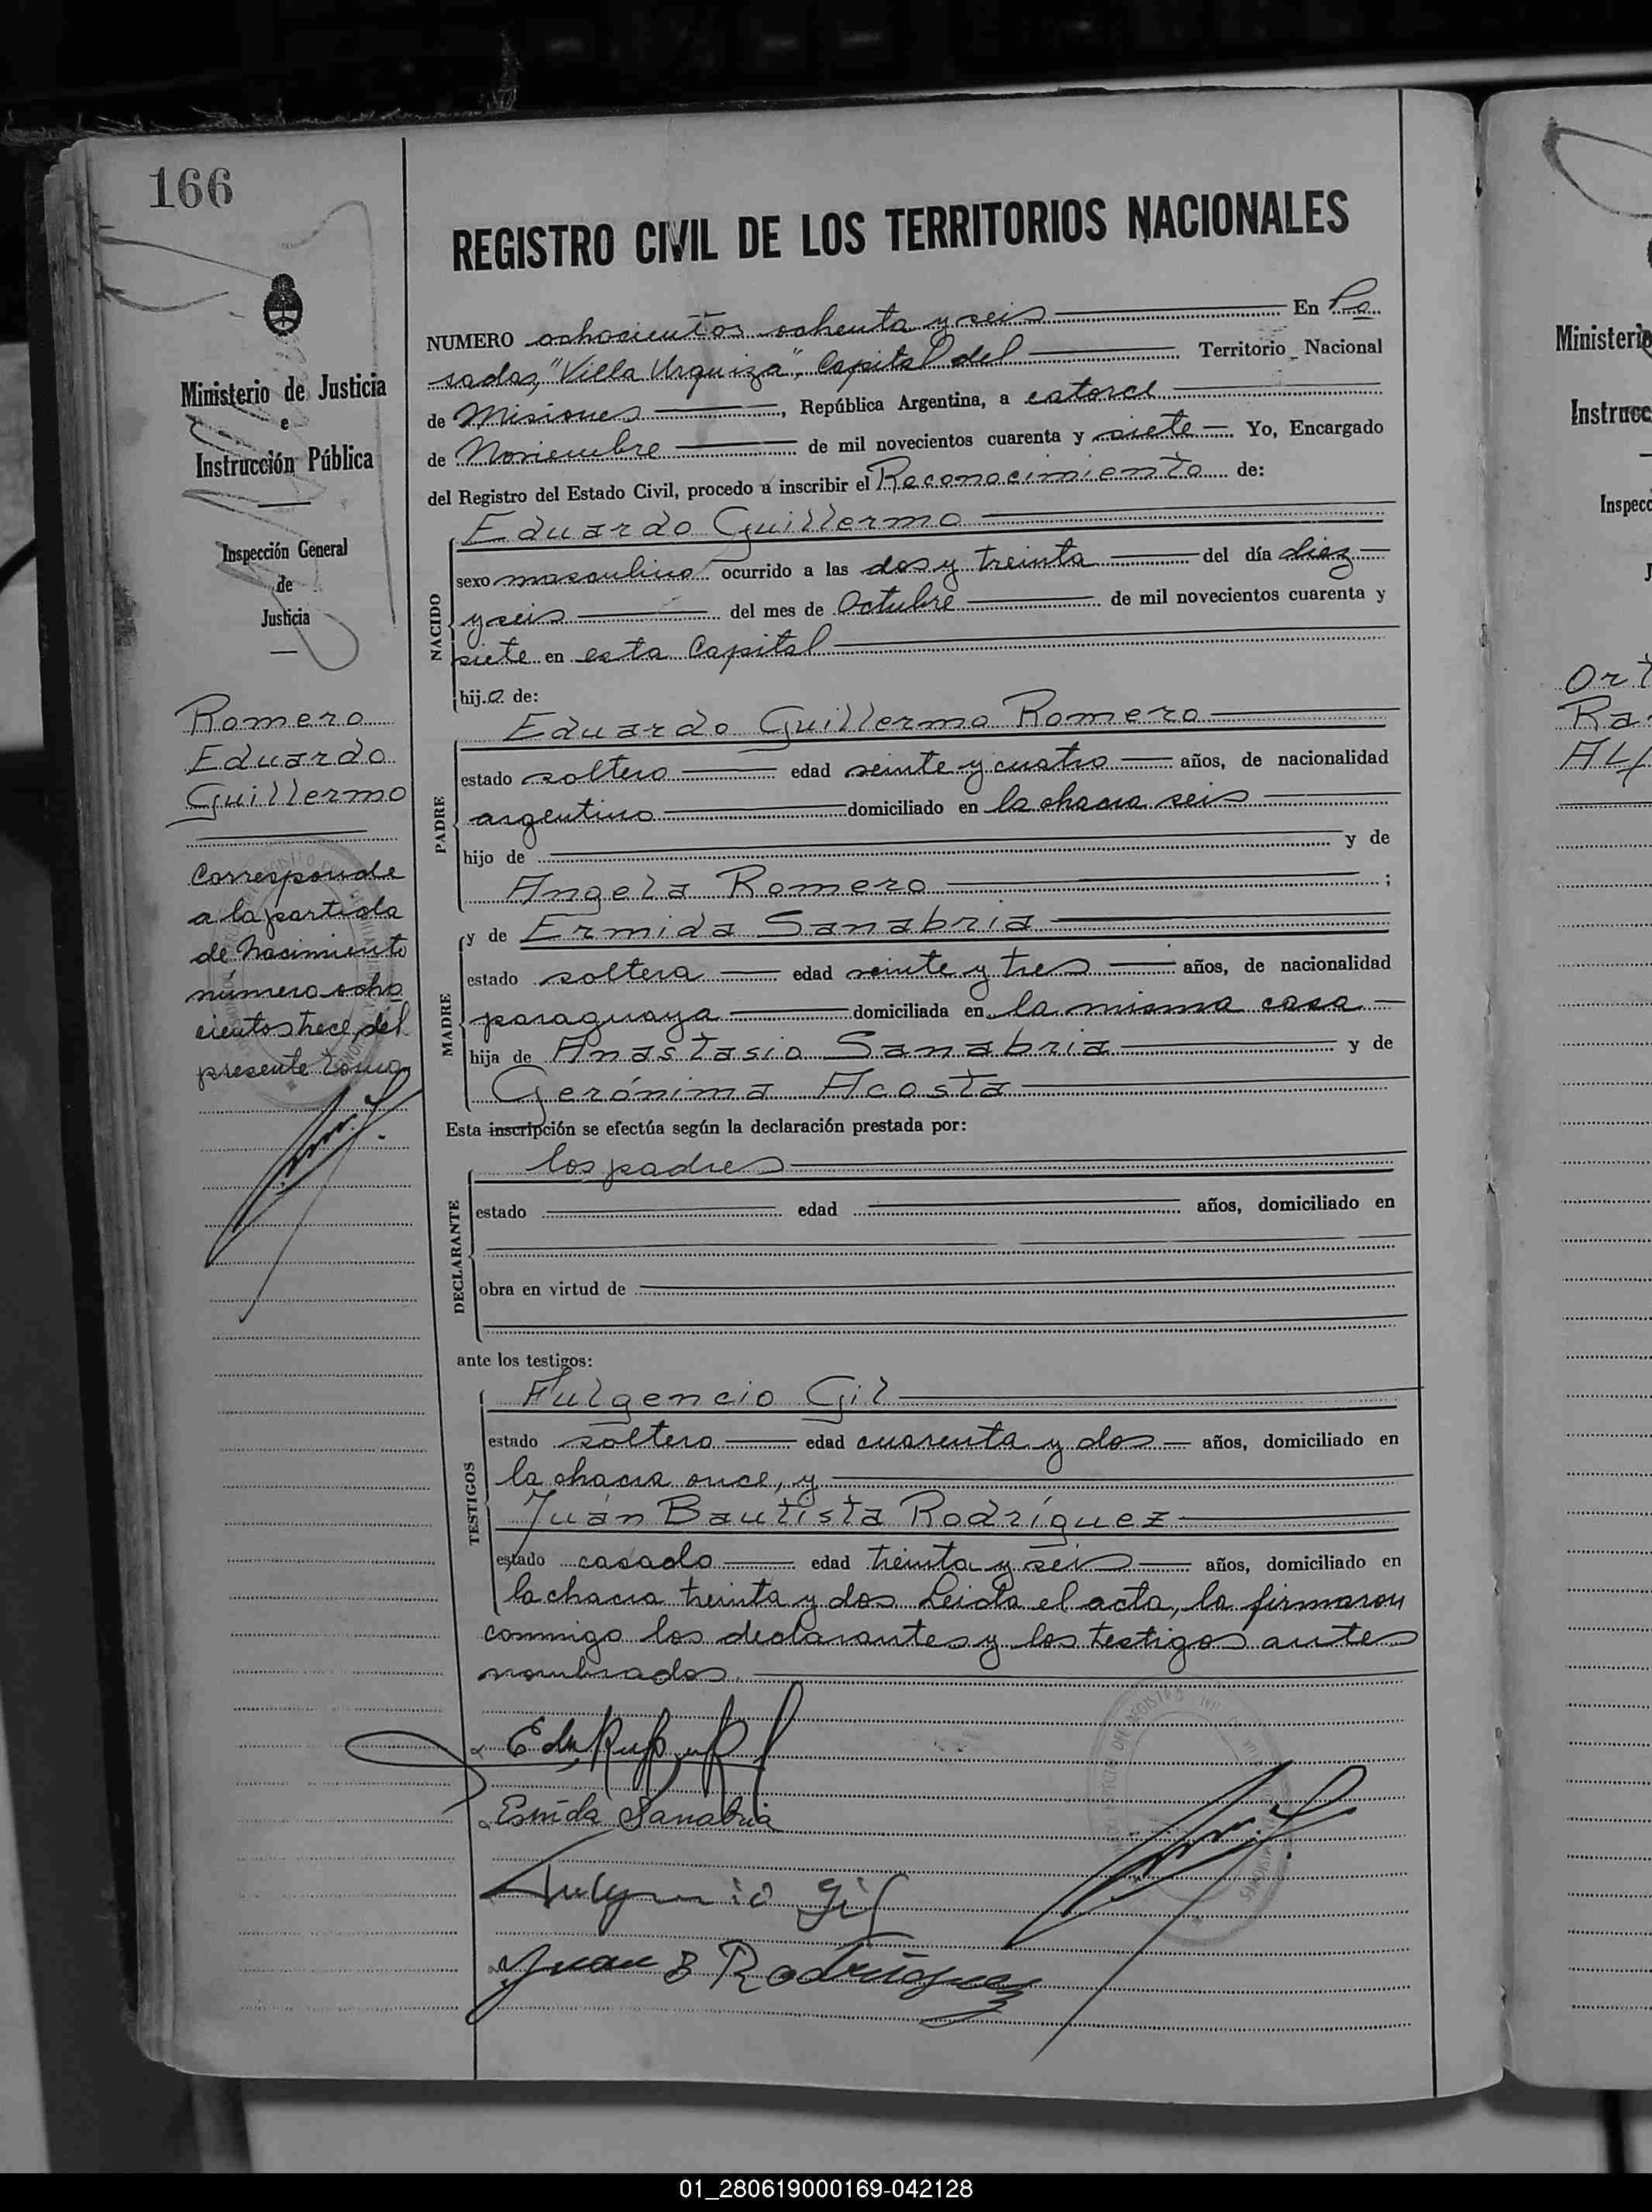 166
REGISTRO CIVIL DE LOS TERRITORIOS NACIONALES
NUMERO ochocientos ochenta y seis En Po
sadas, "Villa Urquiza", Capital del Territorio Nacional
de Misiones, República Argentina, a catorce
de Noviembre de mil novecientos cuarenta y siete Yo, Encargado
del Registro del Estado Civil, procedo a inscribir el Reconocimiento de:
Eduardo Guillermo
NACIDO
sexo masculino ocurrido a las dos y treinta del día diez
y seis del mes de Octubre de mil novecientos cuarenta y
siete en esta Capital
hijo de:
PADRE
Eduardo Guillermo Romero
estado soltero edad veinte y cuatro años, de nacionalidad
argentino domiciliado en la chacra seis
hijo de y de
Angela Romero ;
MADRE
y de Ermida Sanabria
estado soltera edad veinte y tres años, de nacionalidad
paraguaya domiciliada en la misma casa
hija de Anastasio Sanabria y de
Gerónima Acosta
Esta inscripción se efectúa según la declaración prestada por:
DECLARANTE
los padres
estado edad años, domiciliado en
obra en virtud de
ante los testigos:
TESTIGOS
Fulgencio Gil
estado soltero edad cuarenta y dos años, domiciliado en
la chacra once, y
Juán Bautista Rodríguez
estado casado edad treinta y seis años, domiciliado en
la chacra treinta y dos Leida el acta, la firmaron
conmigo los declarantes y los testigos antes
nombrados.
Ermida Sanabria
Fulgencio Gil
Juan B Rodriguez
Ministerio de Justicia
e
Instrucción Pública
Inspección General
de
Justicia
Romero
Eduardo
Guillermo
Corresponde
a la partida
de Nacimiento
número ocho
cientos trece, del
presente tomo
Ministerio
Instrucc
Inspecc
J
Ort
Ra
01_280619000169-042128